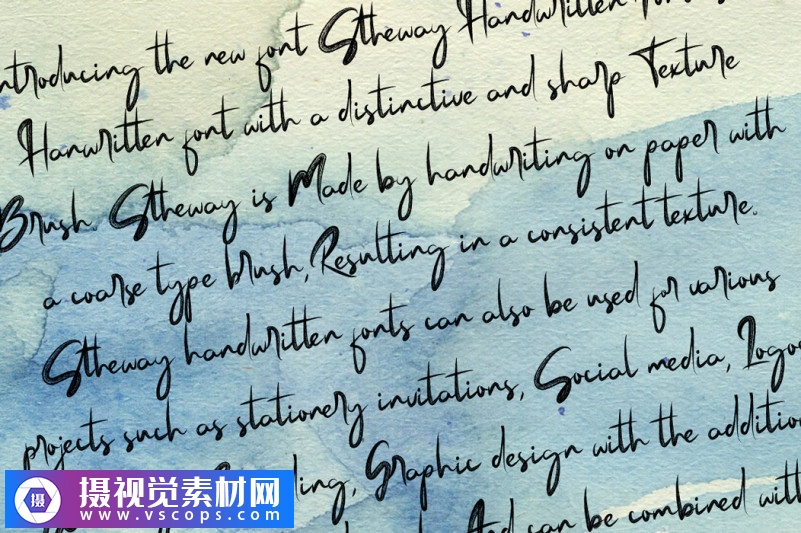 ntroducing the new font Sttheway Handwritten
Hanwritten font with a distinctive and sharp Texture
Brush. Sttheway is Made by handwriting on paper with
a coarse type brush, Resulting in a consistent texture.
Sttheway handwritten fonts can also be used for various
projects such as stationery invitations, Social media, Logos
ding, Graphic design with the addition
And can be combined with
摄
摄视觉素材网
www.vscops.com